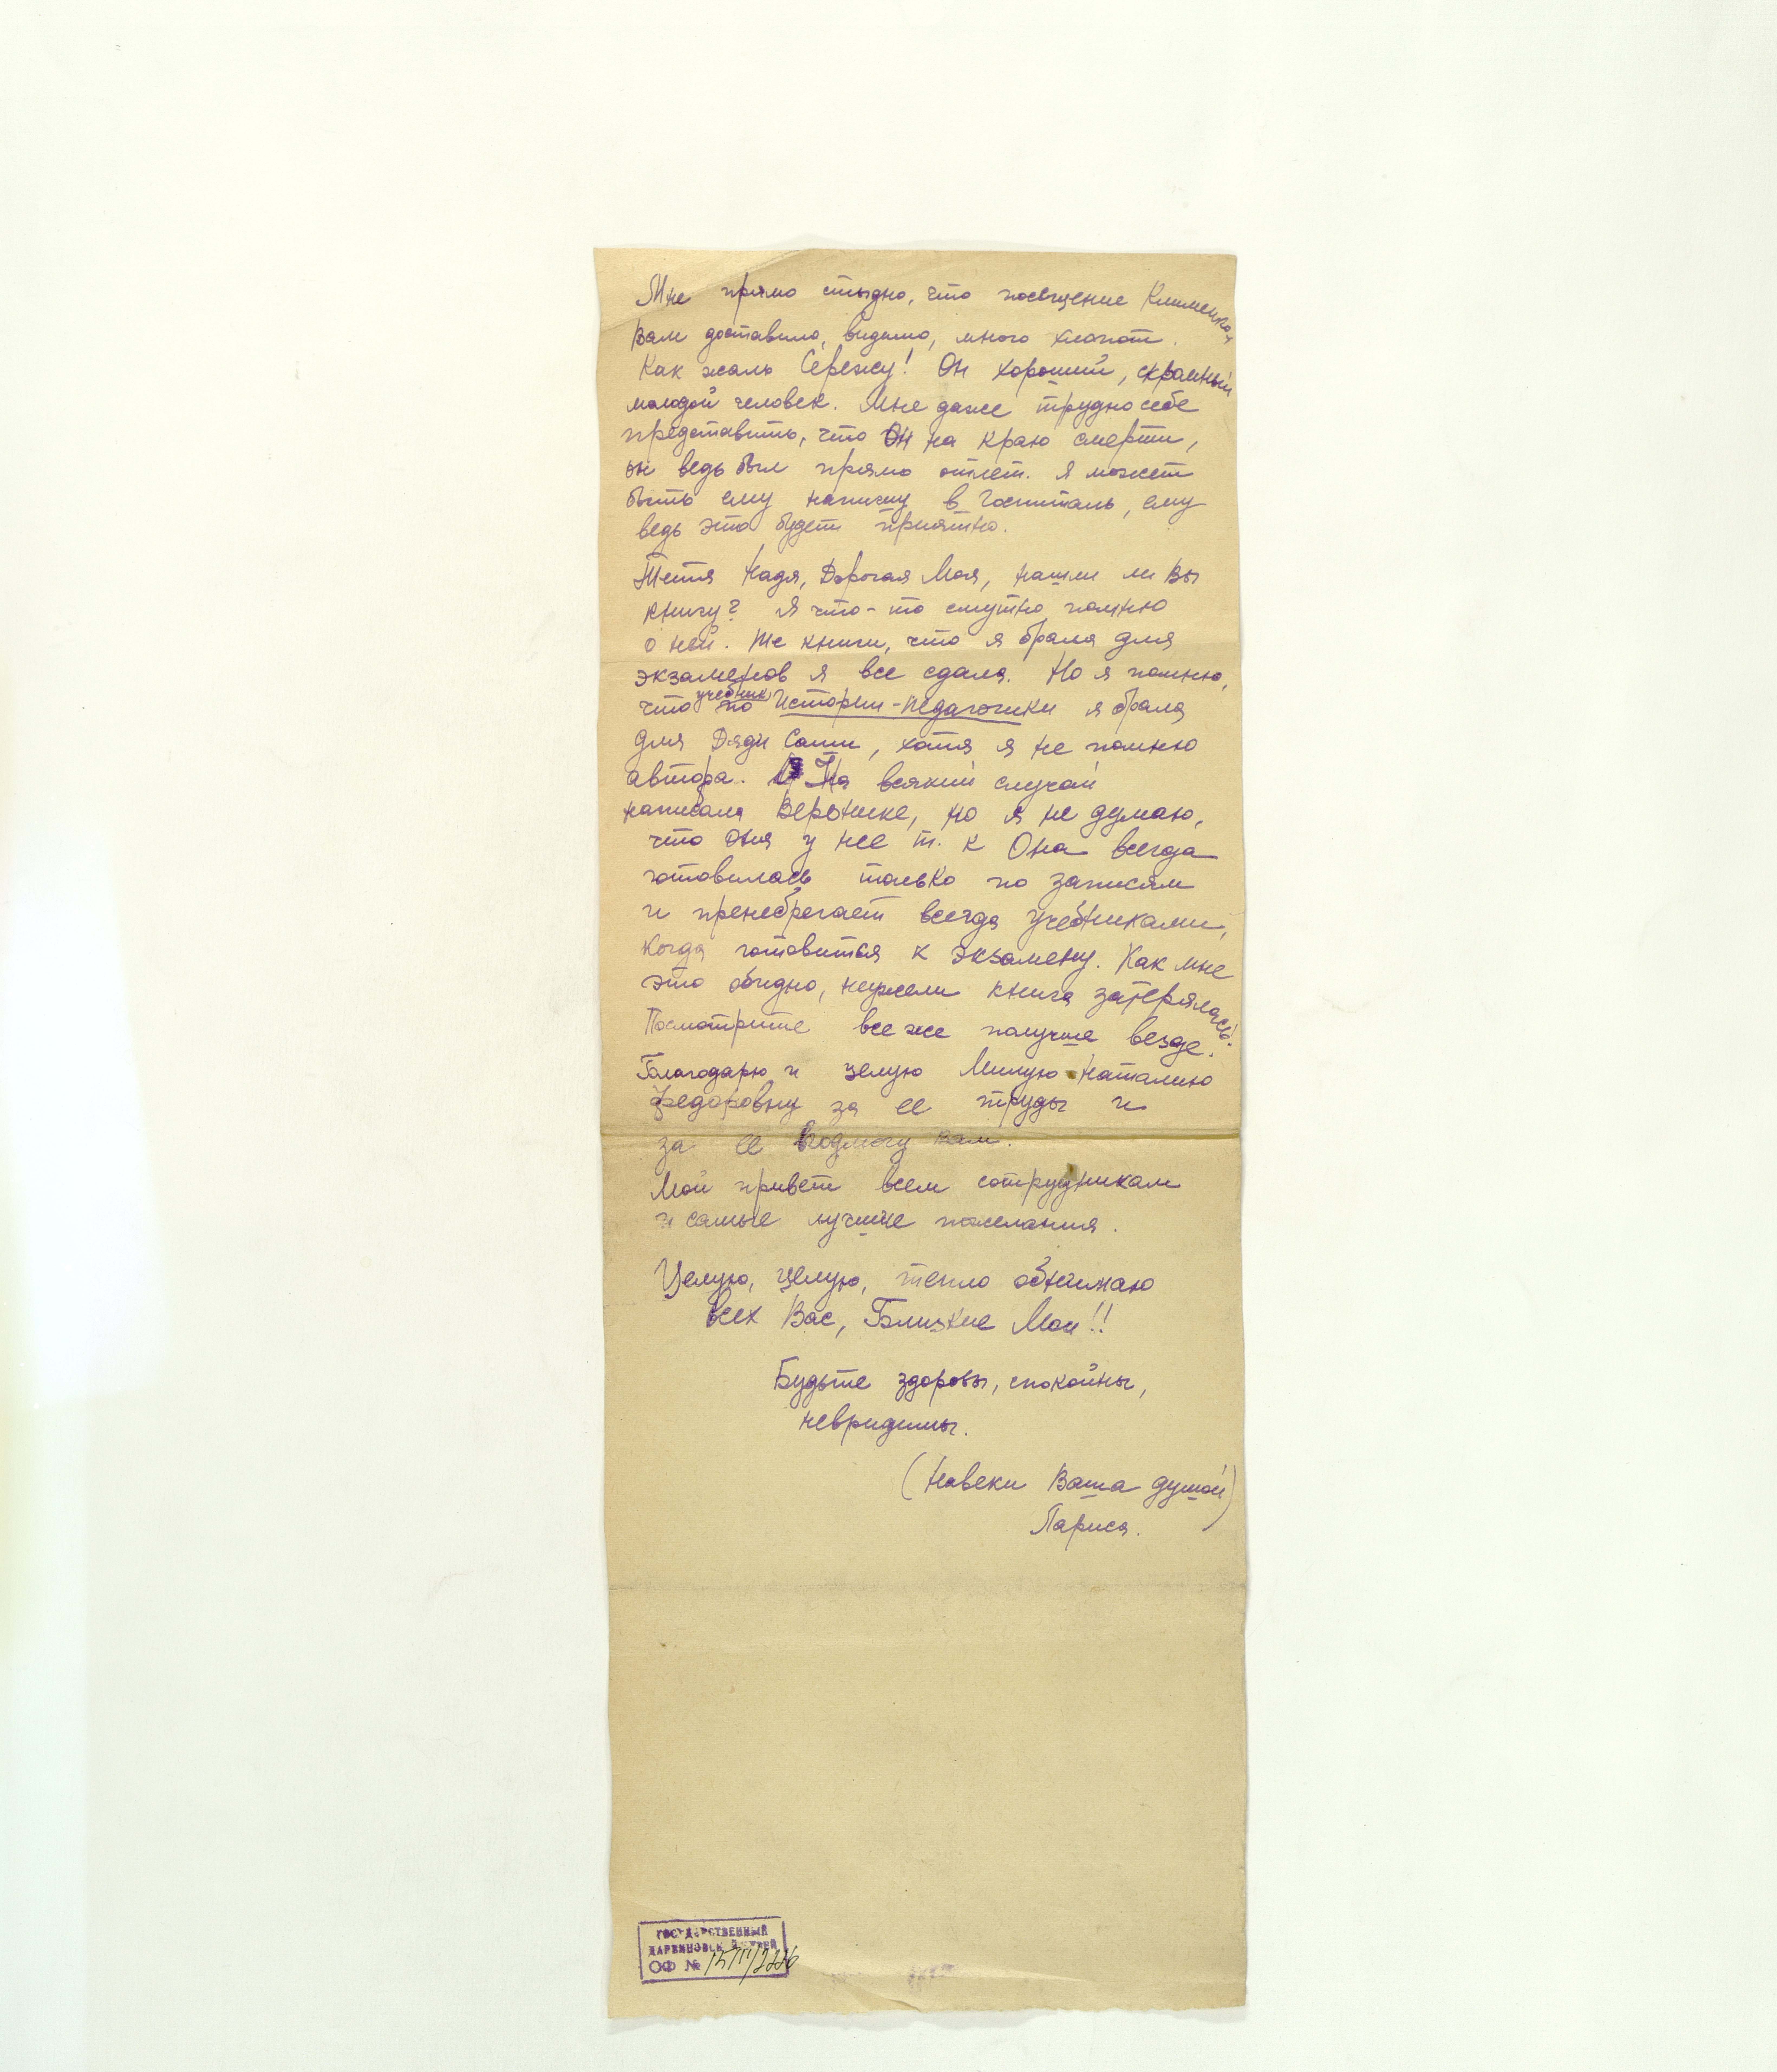 Мне прямо стыдно, что посещение Клименком
Вам доставило, видимо, много хлопот.
Как жаль Сережу! Он хороший, скромный
молодой человек. Мне даже трудно себе
представить, что Он на краю смерти,
он ведь был прямо атлет. Я может
быть ему напишу в Госпиталь, ему
ведь это будет приятно.
Тетя Надя, Дорогая Моя, нашли ли Вы
книгу? Я что-то смутно помню
о ней. Те книги, что я брала для
экзаменов я все сдала. Но я помню,
что учебник по Истории-педагогики я брала
для Дяди Саши, хотя я не помню
автора. На всякий случай
написала Веронике, но я не думаю,
что она у нее т. к Она всегда
готовилась только по записям
и пренебрегает всегда учебниками,
когда готовится к экзамену. Как мне
это обидно, неужели книга затерялась.
Посмотрите все же получше везде.
Благодарю и целую Милую Наталию
Федоровну за ее труды и
за ее подмогу Вам.
Мой привет всем сотрудникам
и самые лучшие пожелания.
Целую, целую, тепло обнимаю
всех Вас, Близкие Мои!!
Будьте здоровы, спокойны,
невридимы.
(Навеки Ваша душой)
Лариса.
ГОСУДАРСТВЕННЫЙ
ДАРВИНОВСК МУЗЕЙ
ОФ №